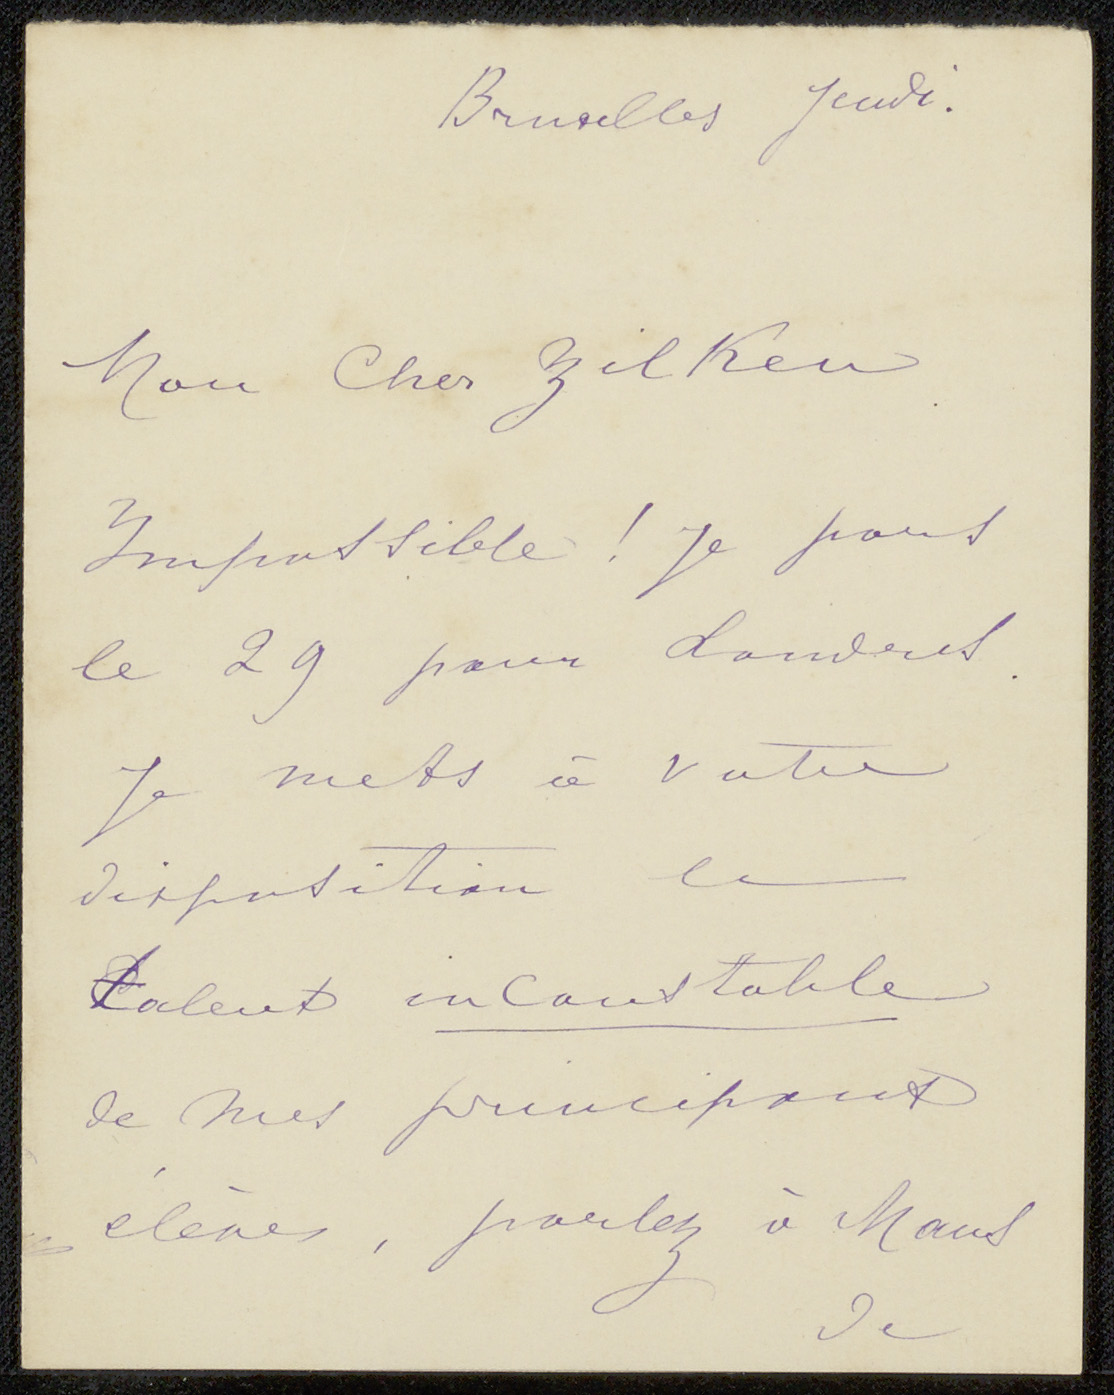 Bruxelles Jeudi.
Mon Cher Zilken
Impossible ! Je pars
le 29 pour Londres.
Je mets à votre
disposition le
talent inconstable
de mes principaux
élèves, parlez à Maus
de